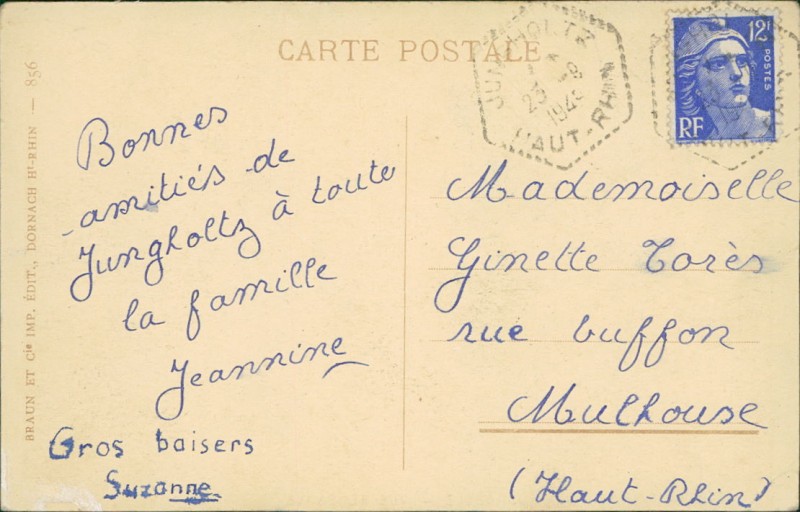 CARTE POSTALE
BRAUN ET Cie IMP. ÉDIT., DORNACH HT-RHIN — 856
Bonnes
amitiés de
Jungholtz à toute
la famille
Jeannine
Gros baisers
Suzanne
JUNGHOLTZ
23 -9
194
HAUT-RHIN
12F
POSTES
RF
Mademoiselle
Ginette Torès
rue buffon
Mulhouse
(Haut-Rhin)